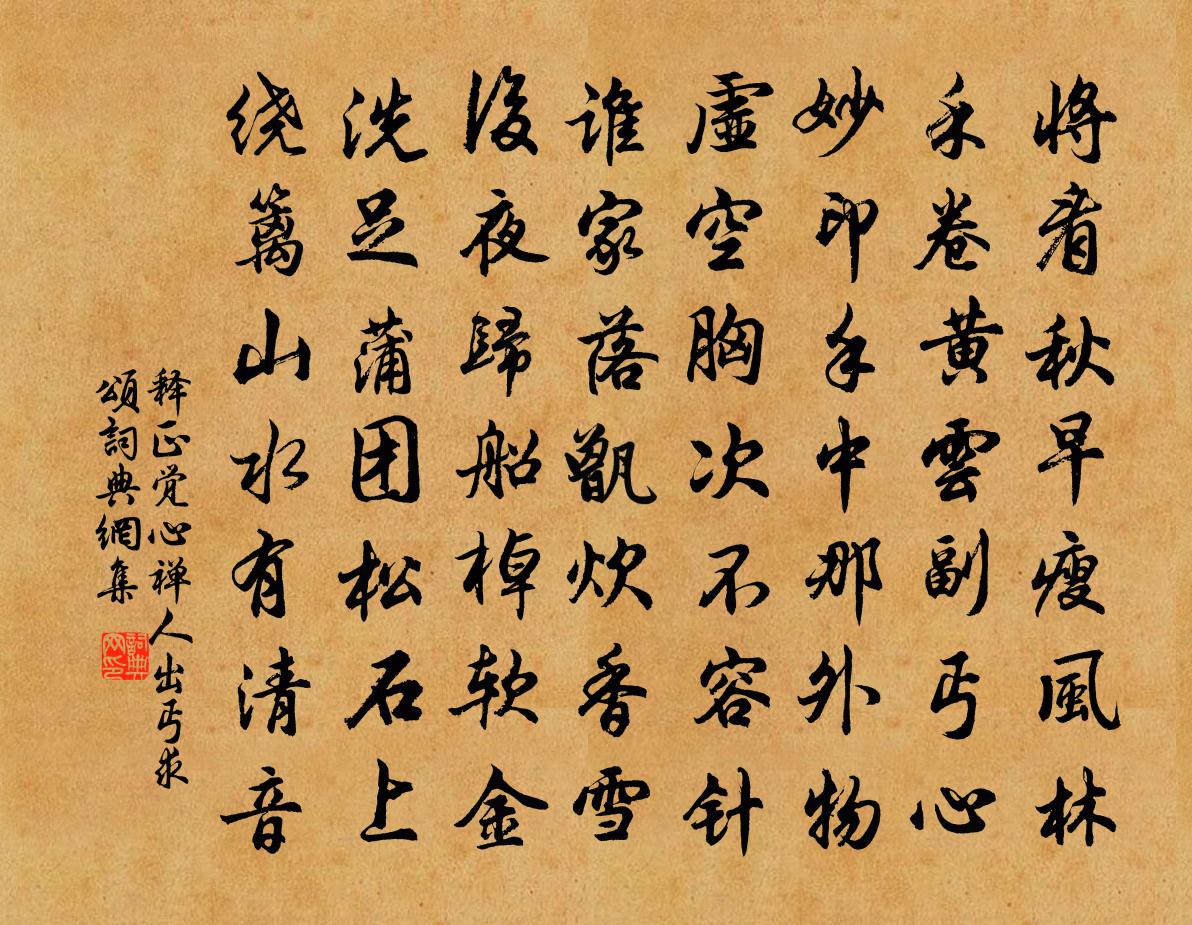 將看秋早瘦風林
禾卷黃雲副丐心
妙印手中那外物
虛空胸次不容针
誰家落甑炊香雪
後夜歸船棹软金
洗足蒲团松石上
绕篱山水有清音
释正觉心禅人出丐求
頌詞典網集
詞典网印